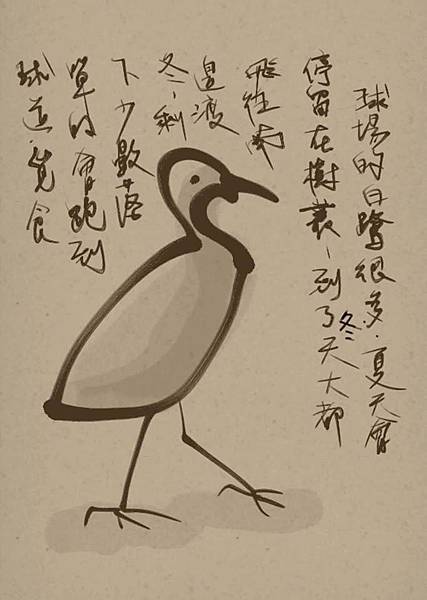 球場的白鷺很多．夏天會
停留在樹裏、到了冬天大都
飛往南
邊渡
冬、剩
下少數落
單的會跑到
球道覓食